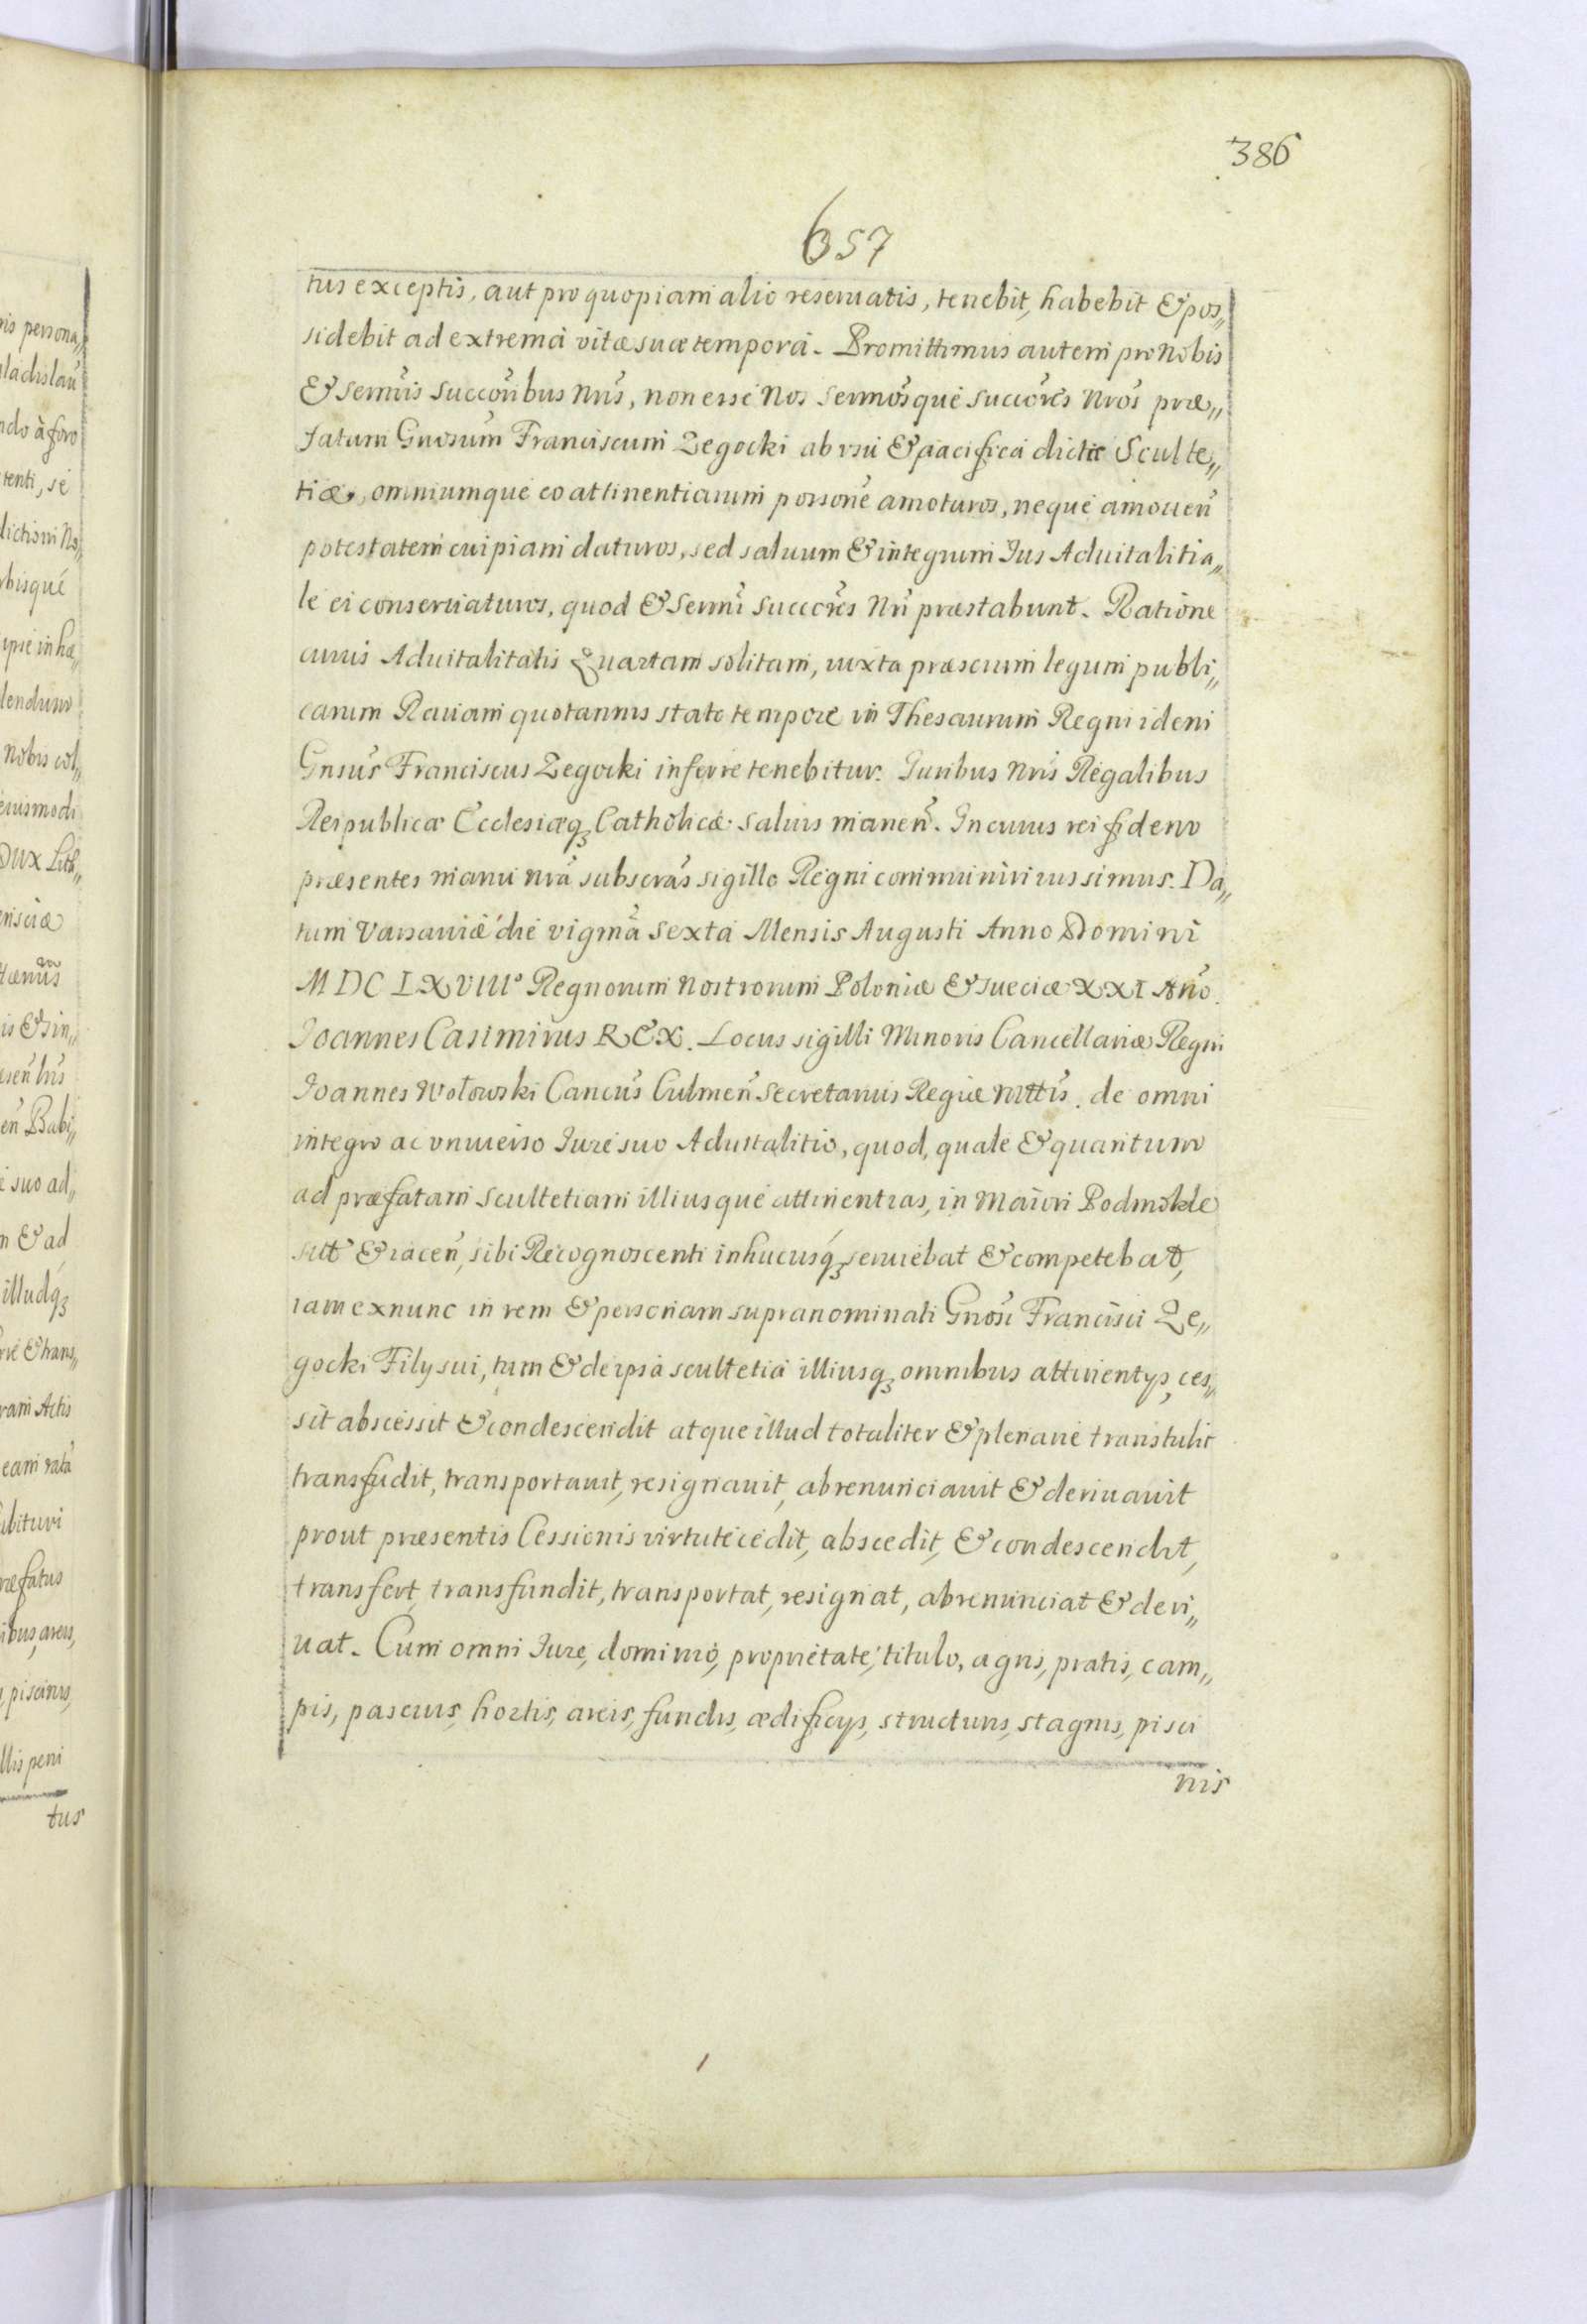 386
657
tus exceptis, aut pro quopiam alio reseruatis, tenebit, habebit & pos„
sidebit ad extrema vitæ suæ tempora. Promittimus autem pro Nobis
& Sermis Succoribus Nris, non esse Nos Sermosque Succores Nros præ„
fatum Gnosum Franciscum Zegocki ab vsu & pacifica dictæ Sculte„
tiæ, omniumque eo attinentiarum porsone amoturos, neque amouen
potestatem cuipiam daturos, sed saluum & integrum Jus Aduitalitia„
le ei conseruaturos, quod & Sermi Succores Nri præstabunt. Ratione
cuius Aduitalitatis Quartam solitam, iuxta præscrum legum publi„
carum Rauam quotannis stato tempore in Thesaurum Regni idem
Gnsus Franciscus Zegocki inferre tenebitur. Juribus Nris Regalibus
Reipublicæ Ecclesiæq₃ Catholicæ saluis manen. In cuius rei fidem
præsentes manu nra subscras sigillo Regni communiri iussimus. Da„
tum Varsauiæ die vigma sexta Mensis Augusti Anno Domini
MDCLXVIIIº Regnorum Nostrorum Poloniæ & Sueciæ XXI Ano.
Joannes Casimirus REX. Locus sigilli Minoris Cancellariæ Regni
Joannes Wołowski Cancus Culmen Secretarius Regiæ Mttis. de omni
integro ac vniuerso Jure suo Aduitalitio, quod, quale & quantum
ad præfatam scultetiam illiusque attinentias, in Maiori Podmokle
sitt & iacen, sibi Recognoscenti inhucusq₃ seruiebat & competebat,
iam exnunc in rem & personam supranominati Gnosi Francisci Ze„
gocki Filij sui, tum & de ipsa scultetia illiusq₃ omnibus attinentijs, ces„
sit abscessit & condescendit atque illud totaliter & plenarie transtulit
transfudit, transportauit, resignauit, abrenunciauit & deriuauit
prout præsentis Cessionis virtute cedit, abscedit, & condescendit,
transfert, transfundit, transportat, resignat, abrenunciat & deri„
uat. Cum omni Jure, dominio, proprietate, titulo, agris, pratis, cam„
pis, pascuis, hortis, areis, fundis, ædificijs, structuris, stagnis, pisci
nis